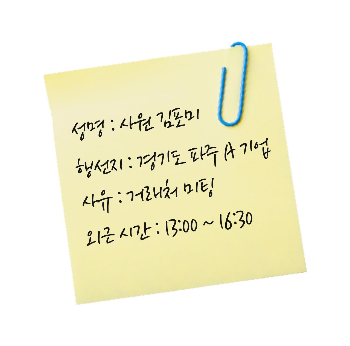 성명 : 사원 김포미
행선지 : 경기도 파주 A 기업
사유 : 거래처 미팅
외근 시간 : 13:00 ~ 16:30